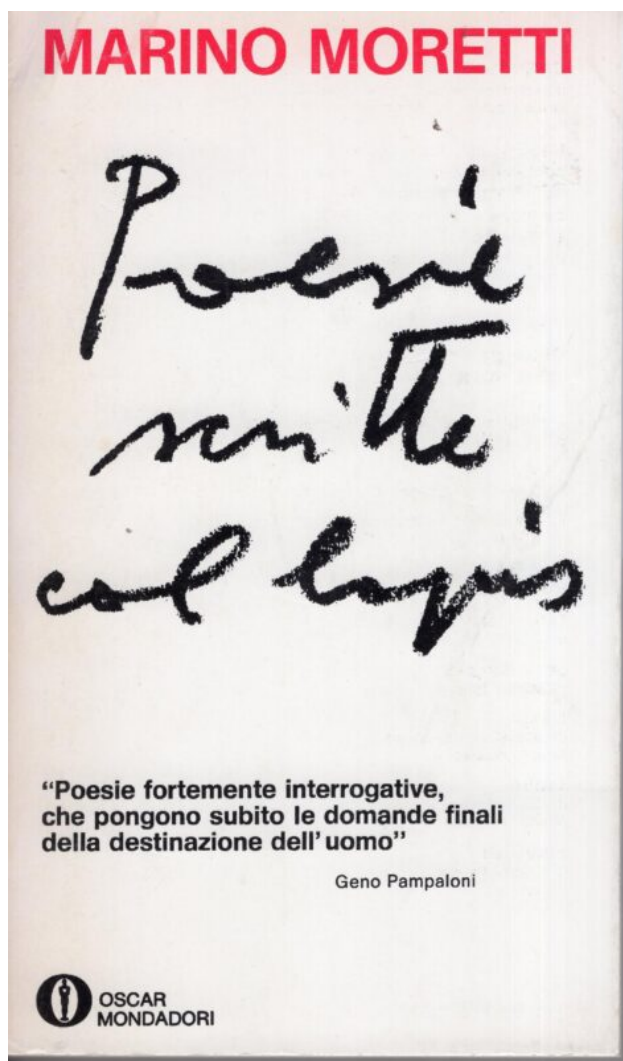 MARINO MORETTI
Poesie
scritte
col lapis
“Poesie fortemente interrogative,
che pongono subito le domande finali
della destinazione dell’uomo”
Geno Pampaloni
OSCAR
MONDADORI